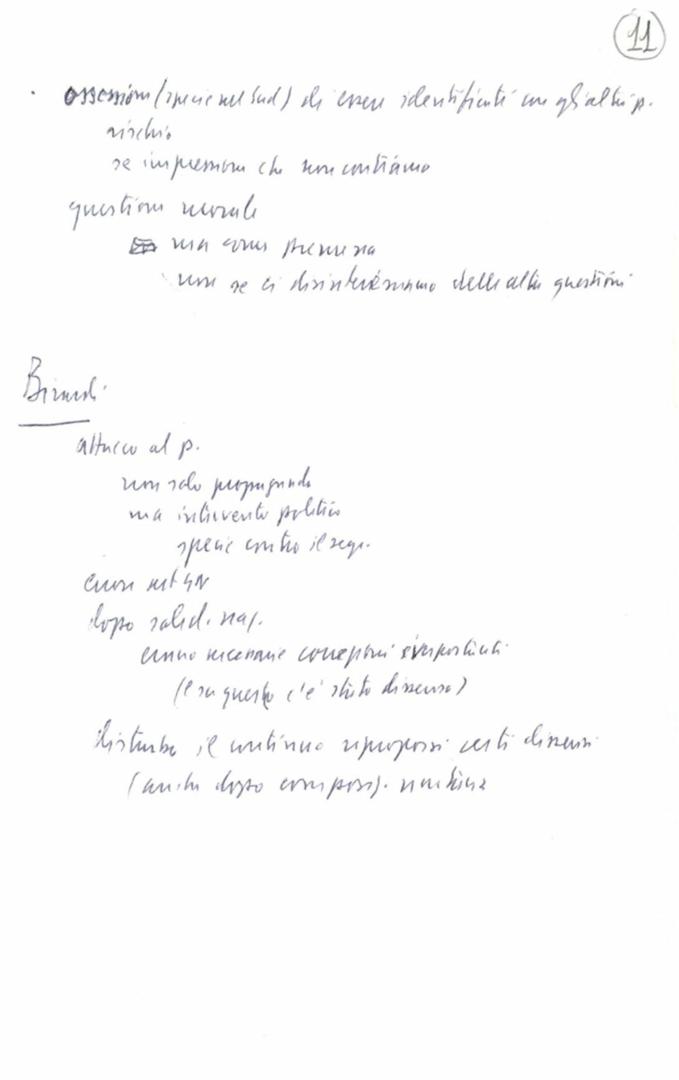 11
ossessione (specie nel Sud) di essere identificati con gli altri p.
rischio
se impressione che non contiamo
questione morale
ma come premessa
non se ci disinteressiamo delle altre questioni
attacco al p.
non solo propaganda
ma intervento politico
specie contro il segr.
dopo solid. naz.
erano necessarie correzioni importanti
(e su questo c'è stato dissenso)
disturba il continuo riproporsi certi dissensi
(anche dopo